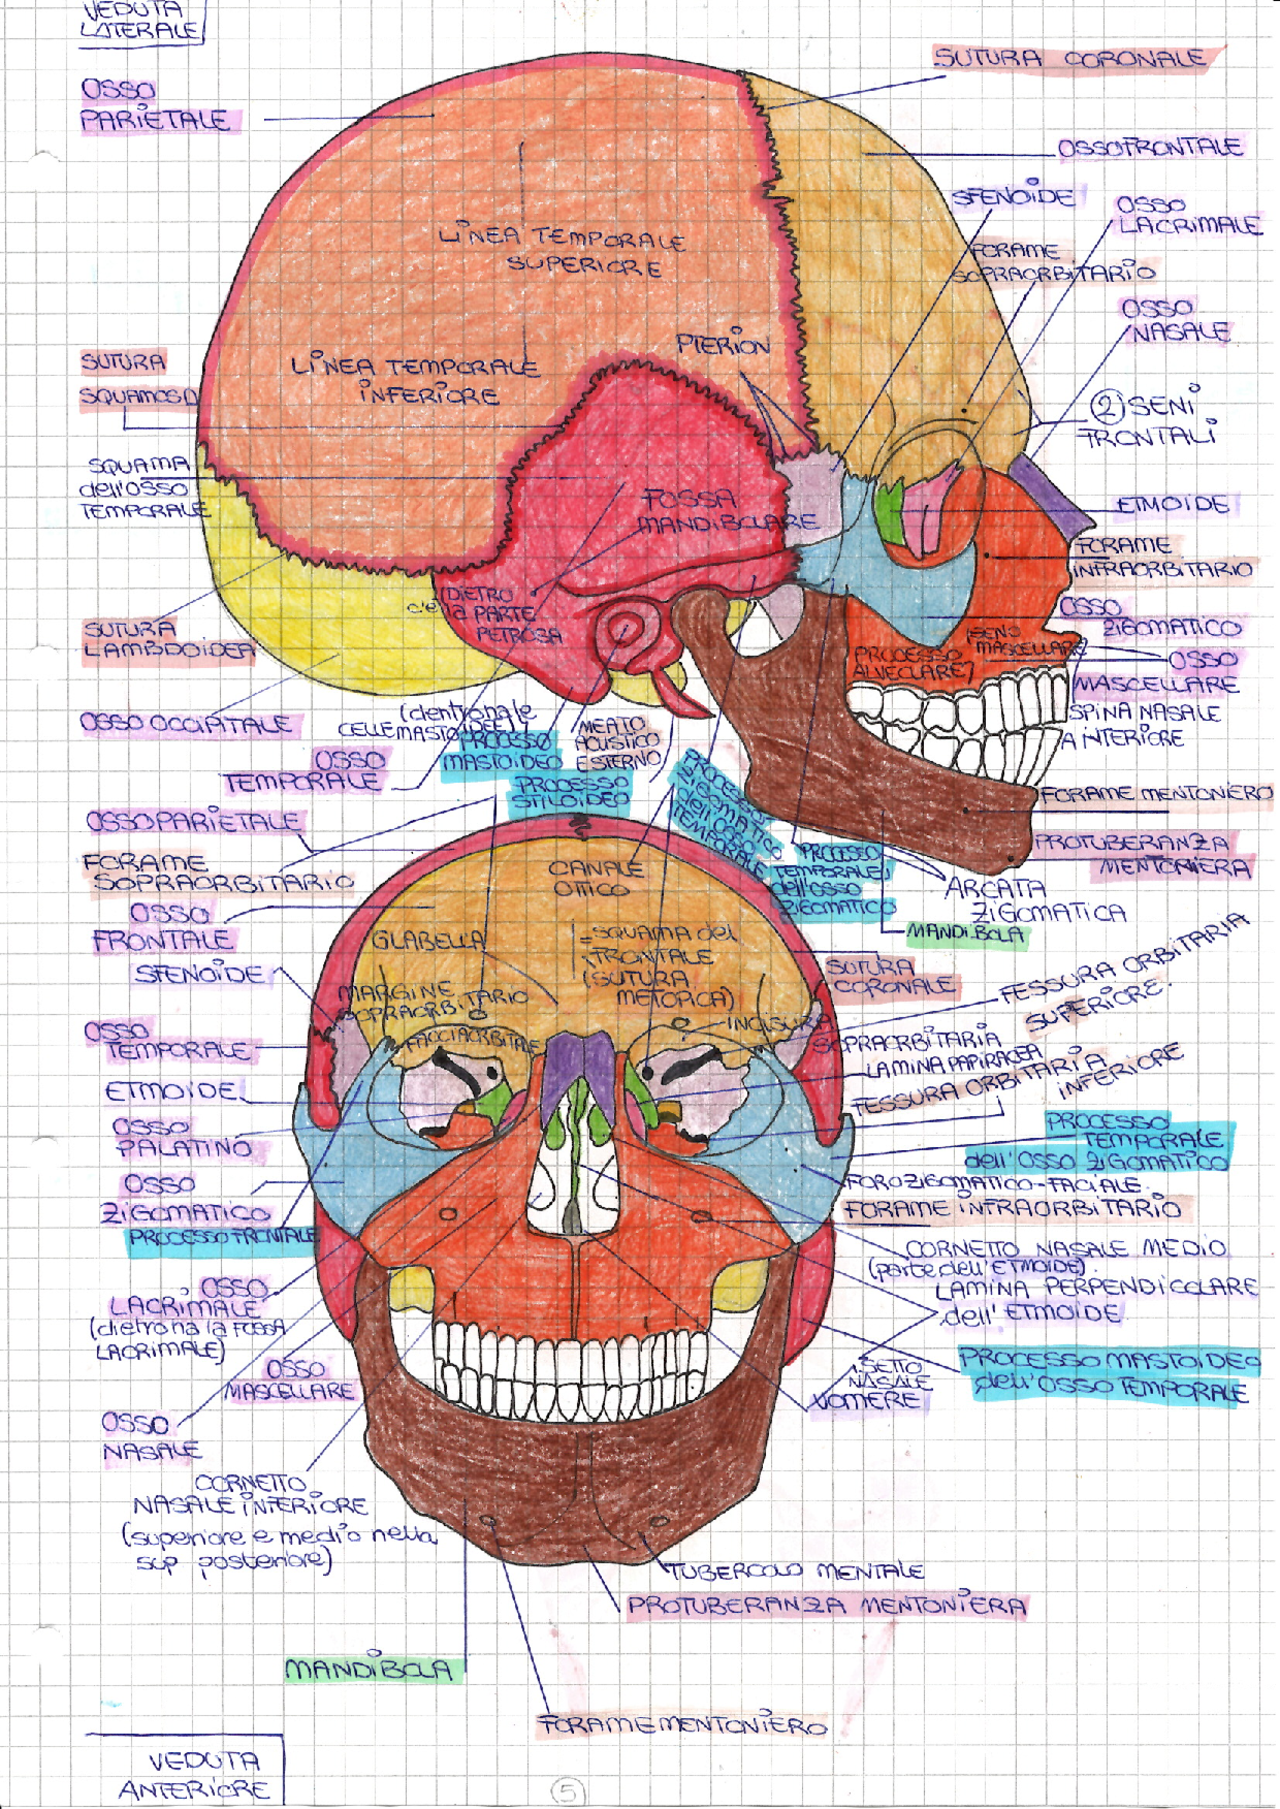 VEDUTA
LATERALE
SUTURA CORONALE
OSSO
PARIETALE
OSSO FRONTALE
SFENOIDE
OSSO
LACRIMALE
LINEA TEMPORALE
SUPERIORE
FORAME
SOPRAORBITARIO
OSSO
NASALE
PTERION
SUTURA
SQUAMOSA
LINEA TEMPORALE
INFERIORE
② SENI
FRONTALI
SQUAMA
dell'OSSO
TEMPORALE
FOSSA
MANDIBOLARE
ETMOIDE
FORAME
INFRAORBITARIO
(DIETRO
c'è la PARTE
PETROSA
OSSO
ZIGOMATICO
SUTURA
LAMBDOIDEA
(SENO
MASCELLARE
PROCESSO
ALVEOLARE)
OSSO
MASCELLARE
OSSO OCCIPITALE
(dentro ha le
CELLE MASTOIDEE)
PROCESSO
MASTOIDEO
MEATO
ACUSTICO
ESTERNO
SPINA NASALE
ANTERIORE
OSSO
TEMPORALE
PROCESSO
STILOIDEO
PROCESSO
ZIGOMATICO
dell'OSSO
TEMPORALE
FORAME MENTONIERO
OSSO PARIETALE
PROTUBERANZA
MENTONIERA
FORAME
SOPRAORBITARIO
CANALE
OTTICO
PROCESSO
TEMPORALE
dell'OSSO
ZIGOMATICO
ARCATA
ZIGOMATICA
OSSO
FRONTALE
GLABELLA
=SQUAMA del
FRONTALE
(SUTURA
METOPICA)
MANDIBOLA
SFENOIDE
SUTURA
CORONALE
FESSURA ORBITARIA
SUPERIORE.
MARGINE
SOPRAORBITARIO
FACCIA ORBITALE
INCISURA
SOPRAORBITARIA
OSSO
TEMPORALE
LAMINA PAPIRACEA
ETMOIDE
FESSURA ORBITARIA
INFERIORE
OSSO
PALATINO
PROCESSO
TEMPORALE
dell'OSSO ZIGOMATICO
OSSO
ZIGOMATICO
FORO ZIGOMATICO-FACIALE.
FORAME INFRAORBITARIO
PROCESSO FRONTALE
CORNETTO NASALE MEDIO
(parte dell'ETMOIDE)
OSSO
LACRIMALE
(dietro ha la FOSSA
LACRIMALE)
LAMINA PERPENDICOLARE
dell'ETMOIDE
OSSO
MASCELLARE
SETTO
NASALE
VOMERE
PROCESSO MASTOIDEO
dell'OSSO TEMPORALE
OSSO
NASALE
CORNETTO
NASALE INFERIORE
(superiore e medio nella
sup posteriore)
TUBERCOLO MENTALE
PROTUBERANZA MENTONIERA
MANDIBOLA
FORAME MENTONIERO
VEDUTA
ANTERIORE
5